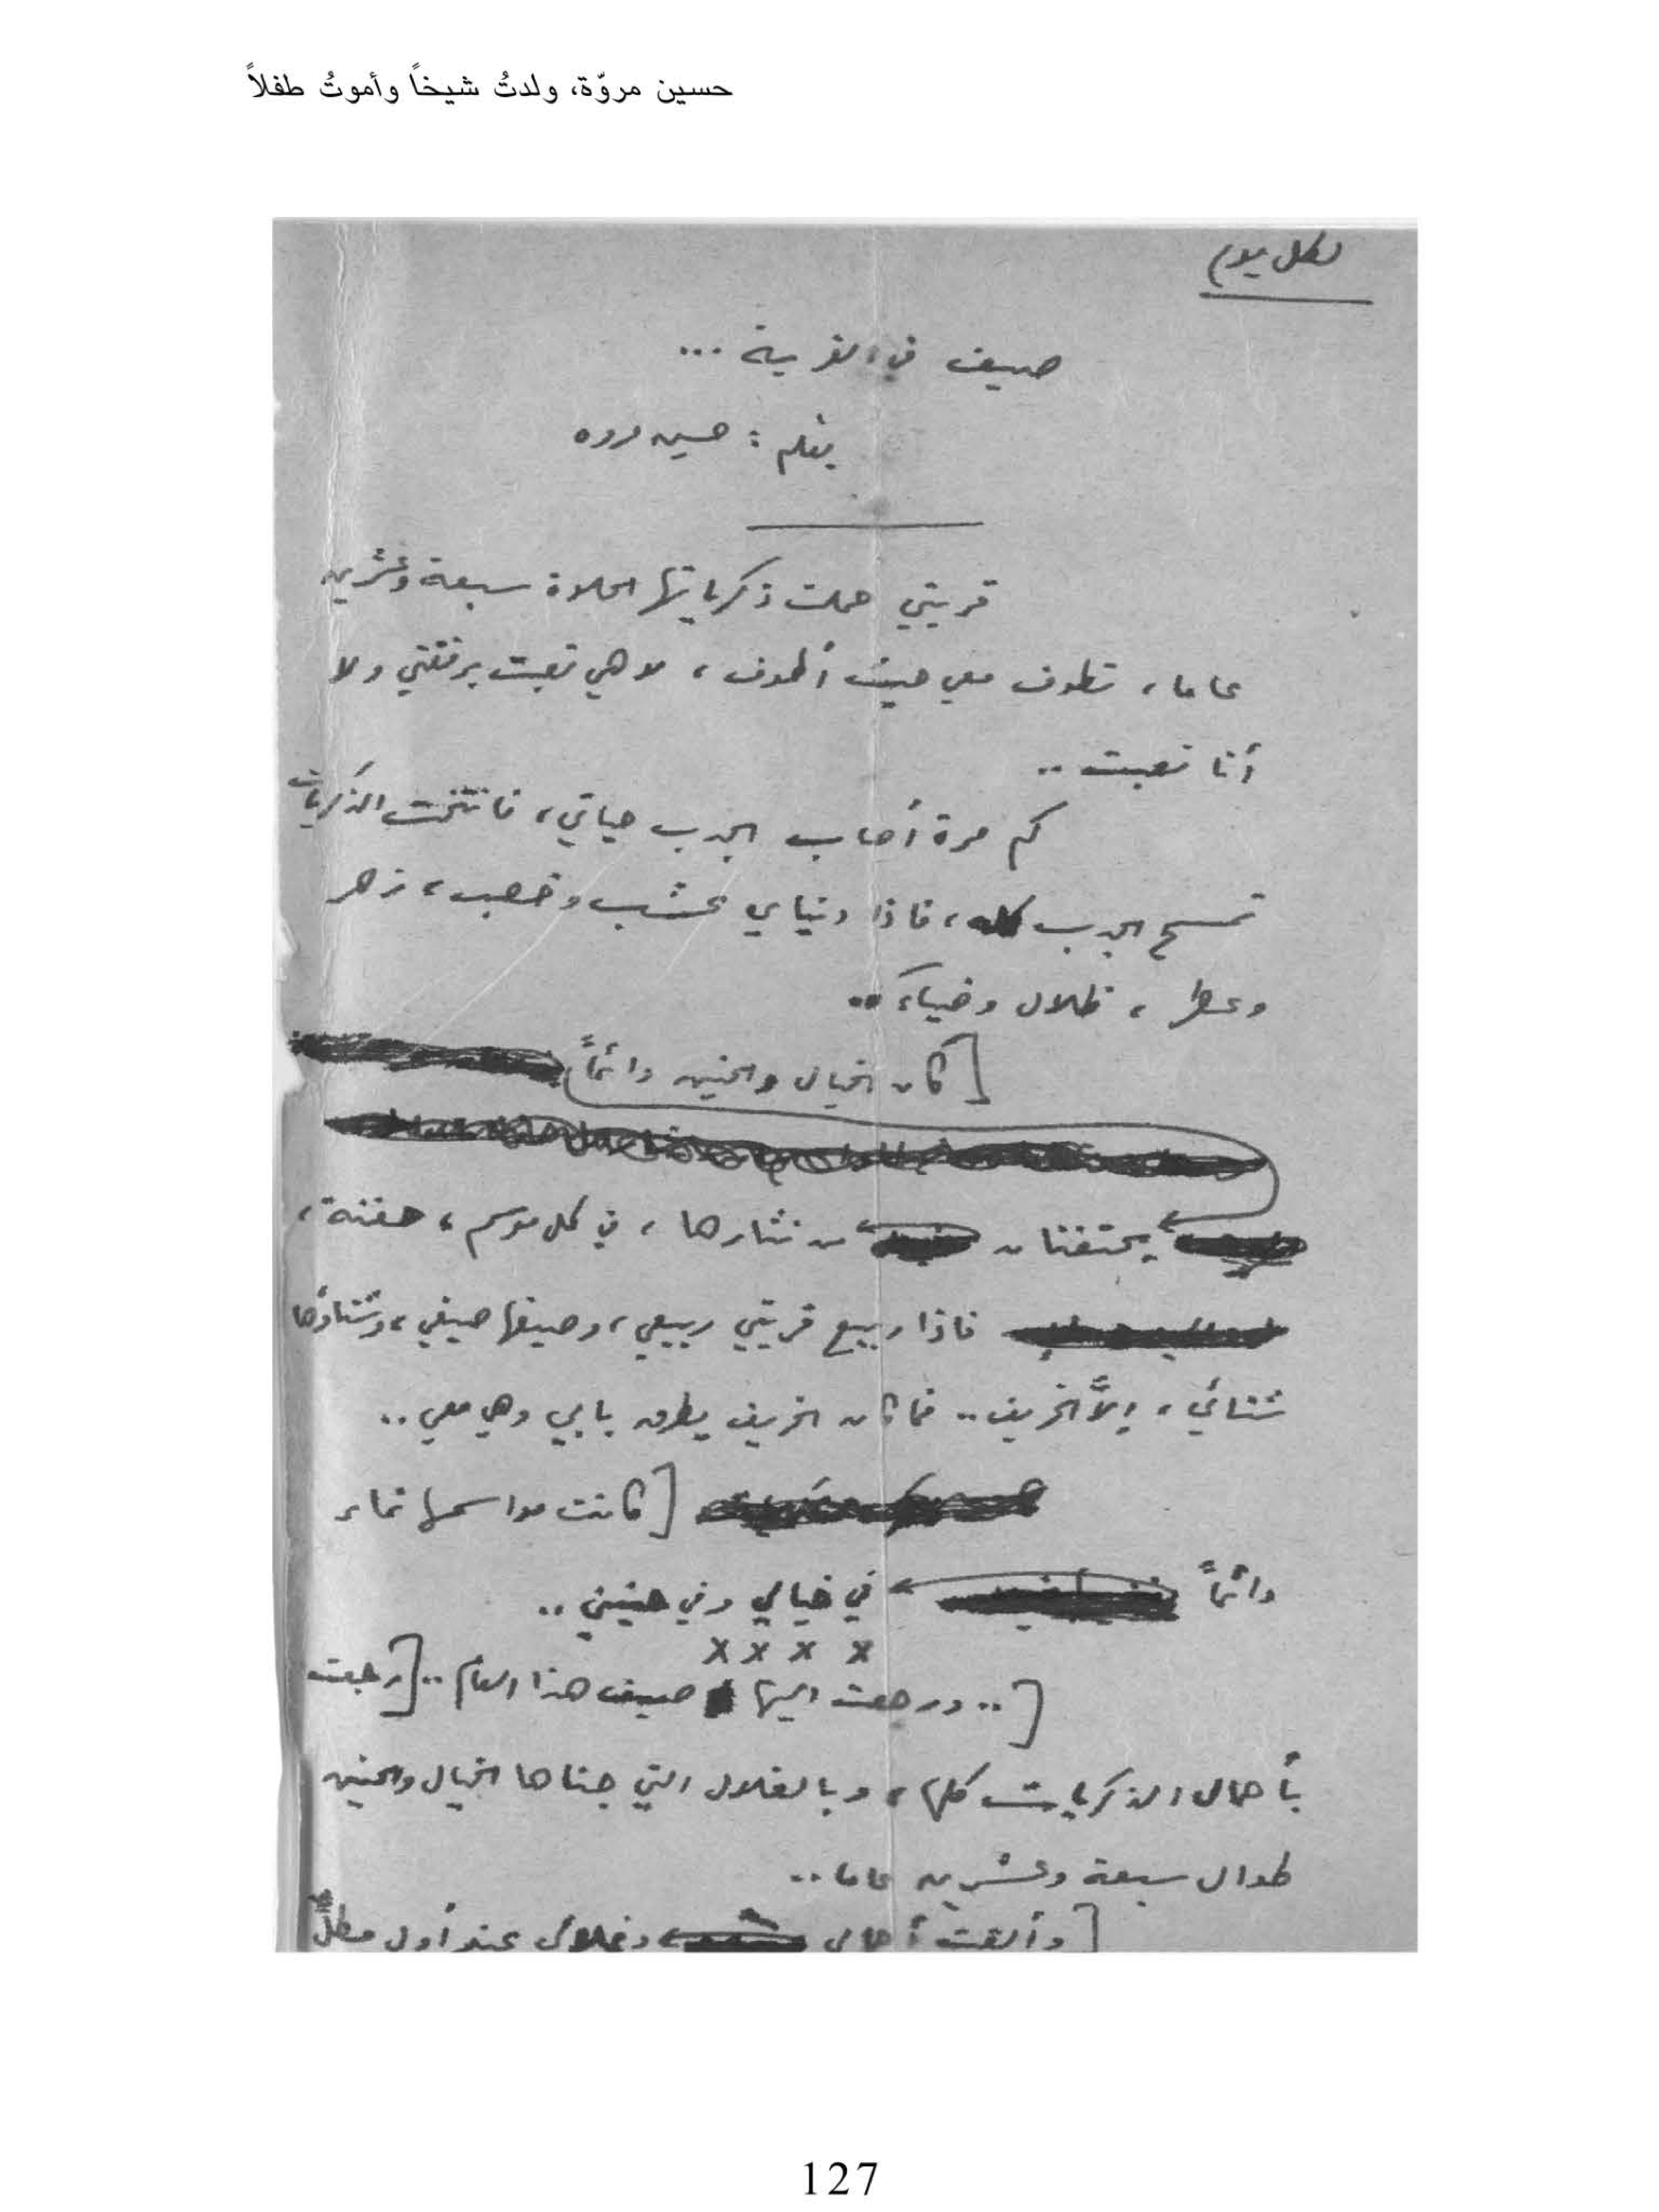 حسين مروّة، ولدتُ شيخاً وأموتُ طفلاً
لكل يوم
صيف في القرية ...
بقلم : حسين مروه
قريتي حملت ذكرياتها الحلاوة سبعة وعشرين
عاما، تطوف معي حيث أطوف، لا هي تعبت برفقتي ولا
أنا تعبت ..
كم مرة أصاب الجدب حياتي، فانتفخت الذكريات
تمسح الجدب كله، فاذا دنياي عشب وخصب، زهر
وعطر، ظلال وضياء ..
[كان الخيال والحنين دائماً
يحتفنان من نثارها، في كل موسم، حفنة،
فاذا ربيع قريتي ربيعي، وصيفها صيفي، وشتاؤها
شتائي، إلاَّ الخريف .. فما كان الخريف يطرق بابي وهي معي ..
[كانت مواسمها تمار
دائماً في خيالي وفي حنيني ..
x x x x
[.. ورجعت اليها صيف هذا العام .. [رجعت
بأحمال الذكريات كلها، وبالغلال التي جناها الخيال والحنين
طوال سبعة وعشرين عاما ..
[وألقيت أحمالي وغلالي عند أول مطلٍّ
127